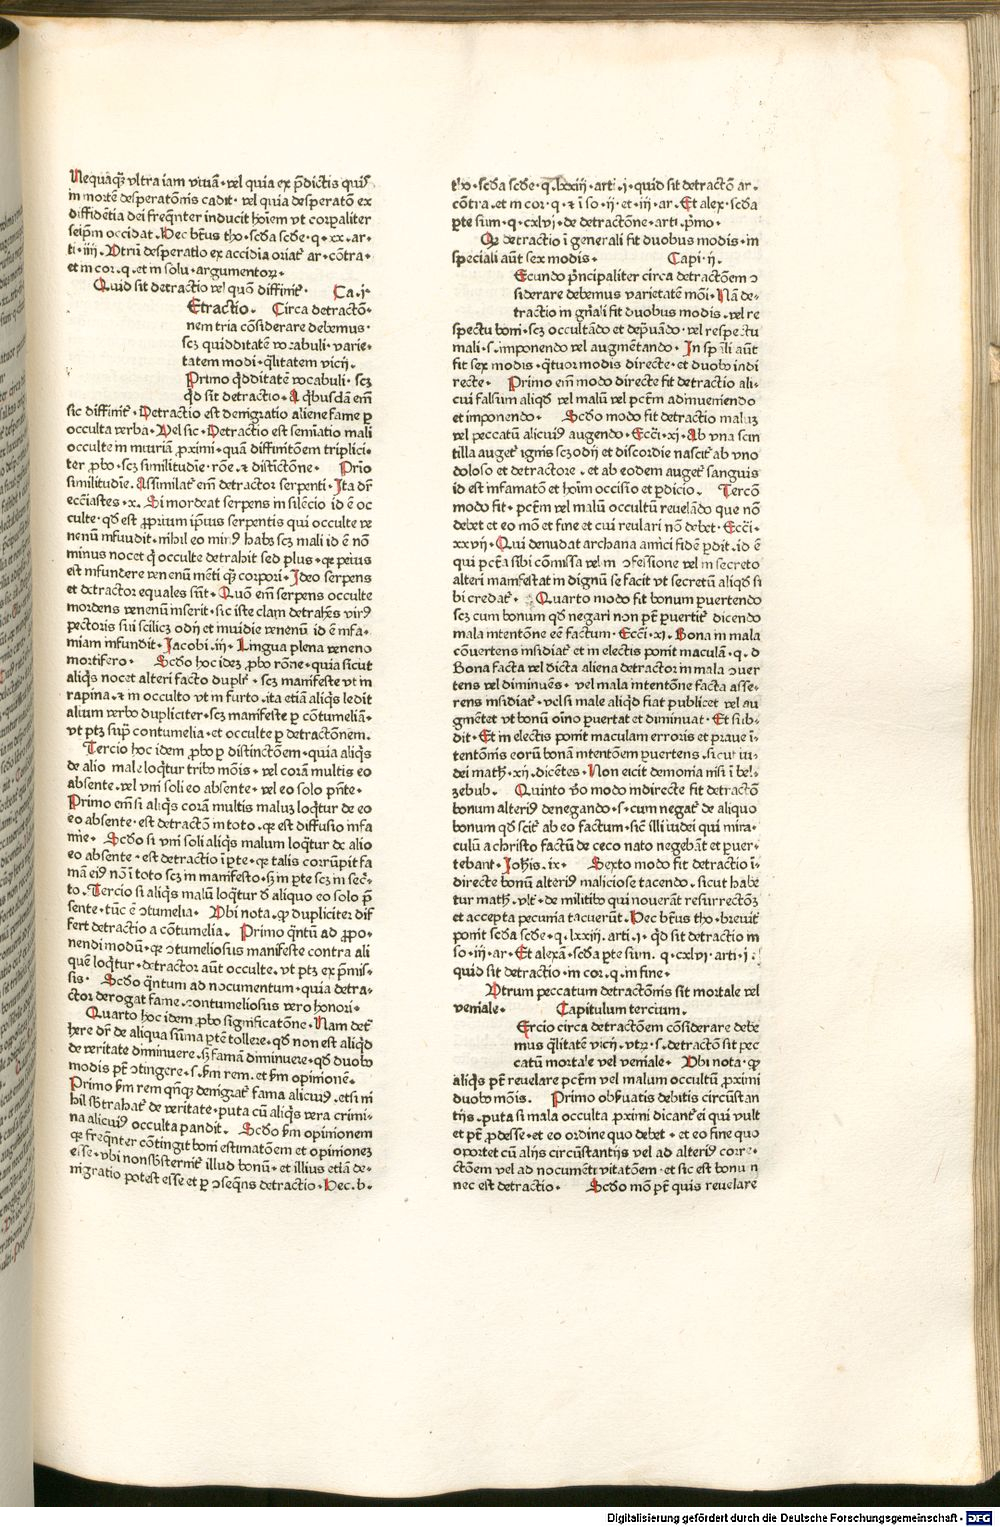 Nequaq̃ vltra iam viuā · vel quia ex p̄dictis quis
in mortē desperatōnis cadit · vel quia desperatō ex
diffidētia dei freq̄nter inducit hoīem vt corpaliter
seip̄m occidat · Hec bt̄us tho · scd̄a scd̄e · q · xx · ar-
ti · iiii · Vtrū desperatio ex accidia oriat̄ ar · cōtra ·
et in cor · q · et in solu · argumentoꝝ ·
Quid sit detractio vel quō diffinit̄ · Ca · i ·
Etractio · Circa detractō-
nem tria cōsiderare debemus ·
scꝫ quidditatē vocabuli · varie-
tatem modi · q̄litatem vicij ·
Primo q̄dditatē vocabuli · scꝫ
q̄d sit detractio · A q̄busdā em̄
sic diffinit̄ · Detractio est denigratio aliene fame ꝑ
occulta verba · Vel sic · Detractio est seminatio mali
occulte in iniuriā ꝓximi · quā diffinitōem triplici-
ter ꝓbo · scꝫ similitudīe · rōne · ⁊ distīctōne · Prīo
similitudīe · Assimilat̄ em̄ detractor serpenti · Ita dr̄
ecciastes · x · Si mordeat serpens in silēcio id ē oc
culte · qd̄ est ꝓprium ip̄ius serpentis qui occulte ve
nenū infundit · nihil eo minꝰ habꝫ scꝫ mali id ē nō
minus nocet q̄ occulte detrahit sed plus · qꝛ peius
est infundere venenū mēti q̄ꝫ corpori · Ideo serpens
et detractor equales sūt · Quō em̄ serpens occulte
mordens venenū inserit · sic iste clam detrahēs virꝰ
pectoris sui scilicꝫ odij et inuidie venenū id ē infa-
miam infundit · Jacobi · iij · Lingua plena veneno
mortifero · Scd̄o hoc idez ꝓbo rōne · quia sicut
aliq̄s nocet alteri facto duplr̄ · scꝫ manifeste vt in
rapina · ⁊ in occulto vt in furto · ita etiā aliq̄s ledit
alium verbo dupliciter · scꝫ manifeste ꝑ cōtumeliā ·
vt ptꝫ sup̄ contumelia · et occulte ꝑ detractōnem ·
Tercio hoc idem ꝓbo ꝑ distinctōem · quia aliq̄s
de alio male loq̄tur tribꝰ mōis · vel corā multis eo
absente · vel vni soli eo absente · vel eo solo p̄nte ·
Primo em̄ si aliq̄s corā multis maluꝫ loq̄tur de eo
eo absente · est detractō in toto · qꝛ est diffusio infa
mie · Scd̄o si vni soli aliq̄s malum loq̄tur de alio
eo absente · est detractio ī ꝑte · qꝛ talis corrūpit fa
mā eiꝰ nō ī toto scꝫ in manifesto · sꝫ in ꝑte scꝫ in sec̄-
to · Tercio si aliq̄s malū loq̄tur d̄ aliquo eo solo p̄
sente · tūc ē ꝯtumelia · Vbi nota · qꝛ dupliciter dif
fert detractio a cōtumelia · Primo q̄ntū ad ꝓpo-
nendi modū · qꝛ ꝯtumeliosus manifeste contra ali
quē loq̄tur · detractor aūt occulte · vt ptꝫ ex p̄mis-
sis · Scd̄o q̄ntum ad nocumentum · quia detra-
ctor derogat fame · contumeliosus vero honori ·
Quarto hoc idem ꝓbo significatōne · Nam det̄
here dr̄ de aliqua sūma ꝑtē tollere · qd̄ non est aliq̄d
de veritate diminuere · sꝫ famā diminuere · qd̄ duobꝰ
modis pt̄ ꝯtingere · s · ẜm rem · et ẜm opinionē ·
Primo ẜm rem qn̄qꝫ denigrat̄ fama alicuiꝰ · etsi ni
hil sb̄trahat̄ de veritate · puta cū aliq̄s vera crimi-
na alicuiꝰ occulta pandit · Scd̄o ẜm opinionem
qꝛ freq̄nter cōtingit boni estimatōem et opinionez
esse · vbi non sb̄sternit̄ illud bonū · et illius etiā de-
nigratio potest esse et ꝑ ꝯseq̄ns detractio · Hec · b ·
tho · scd̄a scd̄e · q · lxxiij · arti · i · quid sit detractō ar ·
cōtra · et in cor · q · ⁊ ī so · ij · et · iij · ar · Et alex · scd̄a
ꝑte sum · q · cxlvi · de detractōne · arti · p̄mo ·
Qꝛ detractio ī generali fit duobus modis · in
speciali aūt sex modis · Capi · ij ·
Ecundo p̄ncipaliter circa detractōem ꝯ
siderare debemus varietatē mōi · Nā de-
tractio in gn̄ali fit duobus modis · vel re
spectu boni · scꝫ occultādo et dep̄uādo · vel respectu
mali · s · imponendo vel augmētando · In sp̄ali aūt
fit sex modis · q̄tuor modis directe · et duobꝰ indi
recte · Primo em̄ modo directe fit detractio ali-
cui falsum aliqd̄ vel malū vel pct̄m adinueniendo
et imponendo · Scd̄o modo fit detractio maluꝫ
vel peccatū alicuiꝰ augendo · Ecc̄i · xi · Ab vna scin
tilla auget̄ ignis scꝫ odij et discordie nascit̄ ab vno
doloso et detractore · et ab eodem auget̄ sanguis
id est infamatō et hoīm occisio et ꝑdicio · Tercō
modo fit · pct̄m vel malū occultū reuelādo que nō
debet et eo mō et fine et cui reulari nō debet · Ecc̄i ·
xxvij · Qui denudat archana amici fidē ꝑdit · id ē
qui pct̄a sibi cōmissa vel in ꝯfessione vel in secreto
alteri manifestat indignū se facit vt secretū aliqd̄ si
bi credat̄ · Quarto modo fit bonum ꝑuertendo
scꝫ cum bonum qd̄ negari non pt̄ ꝑuertit̄ dicendo
mala intentōne eē factum · Ecc̄i · xi · Bona in mala
cōuertens insidiat̄ et in electis ponit maculā · q · d
Bona facta vel dicta aliena detractor in mala ꝯuer
tens vel diminuēs · vel mala intentōne facta asse-
rens insidiat̄ · vel si male aliqd̄ fiat publicet vel au
gmētet vt bonū oīno ꝑuertat et diminuat · Et sub-
dit · Et in electis ponit maculam erroris et praue ī-
tentōnis eorū bonā intentōem ꝑuertens · sicut iu-
dei math̄ · xij · dicētes · Non eicit demonia nisi ī bel-
zebub · Quinto v̄o modo indirecte fit detractō
bonum alteriꝰ denegando · s · cum negat̄ de aliquo
bonum qd̄ scit̄ ab eo factum · sic̄ illi iudei qui mira-
culū a christo factū de ceco nato negabāt et ꝑuer-
tebant · Joh̄is · ix · Sexto modo fit detractio ī-
directe bonū alteriꝰ maliciose tacendo · sicut habe
tur math̄ · vlt̄ · de militibꝰ qui nouerāt resurrectōꝫ
et accepta pecunia tacuerūt · Hec bt̄us tho · breuit̄
ponit scd̄a scd̄e · q · lxxiij · arti · i · qd̄ sit detractio in
so · iij · ar · Et alexā · scd̄a ꝑte sum · q · cxlvi · arti · i ·
quid sit detractio · in cor · q · in fine ·
Vtrum peccatum detractōnis sit mortale vel
veniale · Capitulum tercium ·
Ercio circa detractōem cōsiderare debe
mus q̄litatē vicij · vtꝝ · s · detractō sit pec
catū mortale vel veniale · Vbi nota · qꝛ
aliq̄s pt̄ reuelare pct̄m vel malum occultū ꝓximi
duobꝰ mōis · Primo obẜuatis debitis circūstan
tijs · puta si mala occulta ꝓximi dicant̄ ei qui vult
et pt̄ ꝓdesse · et eo ordine quo debet · et eo fine quo
oportet cū alijs circūstantijs vel ad alteriꝰ corre-
ctōem vel ad nocumēti vitatōem · et sic est bonum
nec est detractio · Scd̄o mō pt̄ quis reuelare
Digitalisierung gefördert durch die Deutsche Forschungsgemeinschaft - DFG